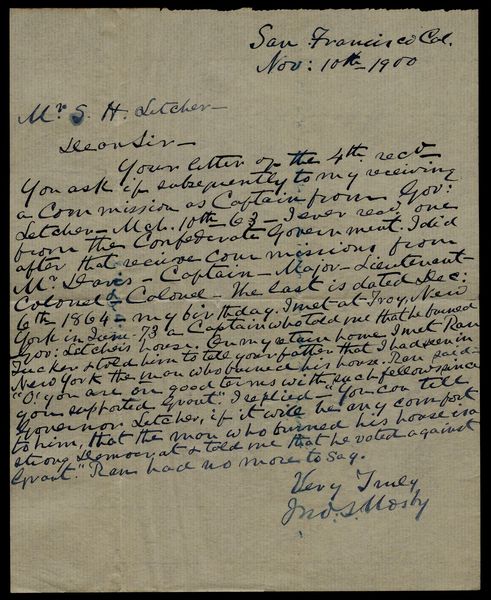 San Francisco Cal.
Nov: 10th 1900
Mr S. H. Letcher—
Dear Sir—
Your letter of the 4th recd—
You ask if subsequently to my receiving
a Commission as Captain from Gov:
Letcher— Mch. 10th 63— I ever recd one
from the Confederate Government. I did
after that receive Commissions from
Mr Davis— Captain— Major— Lieutenant
Colonel & Colonel— the last is dated Dec:
6th 1864— my birthday. I met at Troy, New
York in June 73 a Captain who told me that he burned
Gov: Letcher's house. On my return home I met Ran
Tucker & told him to tell your father that I had seen in
New York the man who burned his house. Ran said—
"O! you are on good terms with such fellows since
you supported Grant". I replied— "You can tell
Governor Letcher, if it will be any comfort
to him, that the man who burned his house is a
strong Democrat & told me that he voted against
Grant." Ran had no more to say.
Very Truly
Jno. S. Mosby